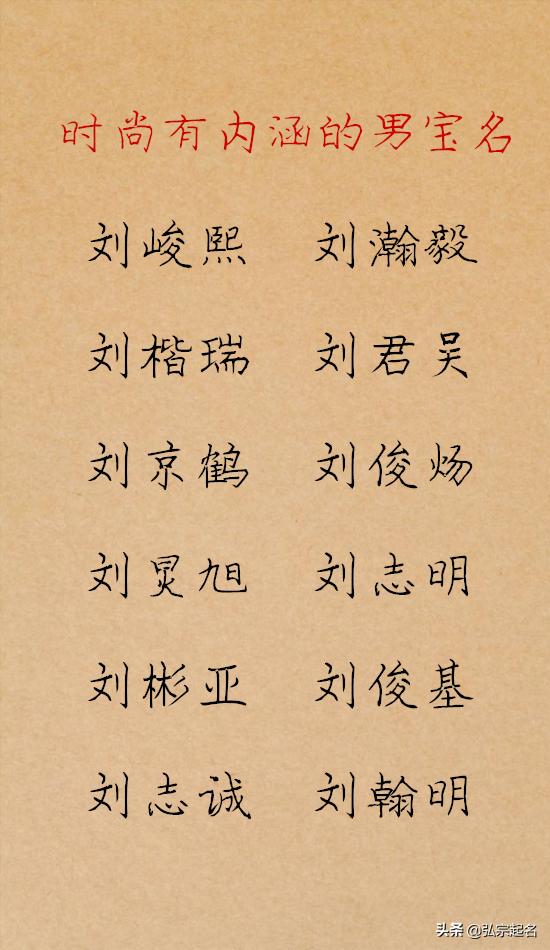 时尚有内涵的男宝名
刘峻熙 刘瀚毅
刘楷瑞 刘君吴
刘京鹤 刘俊炀
刘炅旭 刘志明
刘彬亚 刘俊基
刘志诚 刘翰明
头条 @弘宗起名